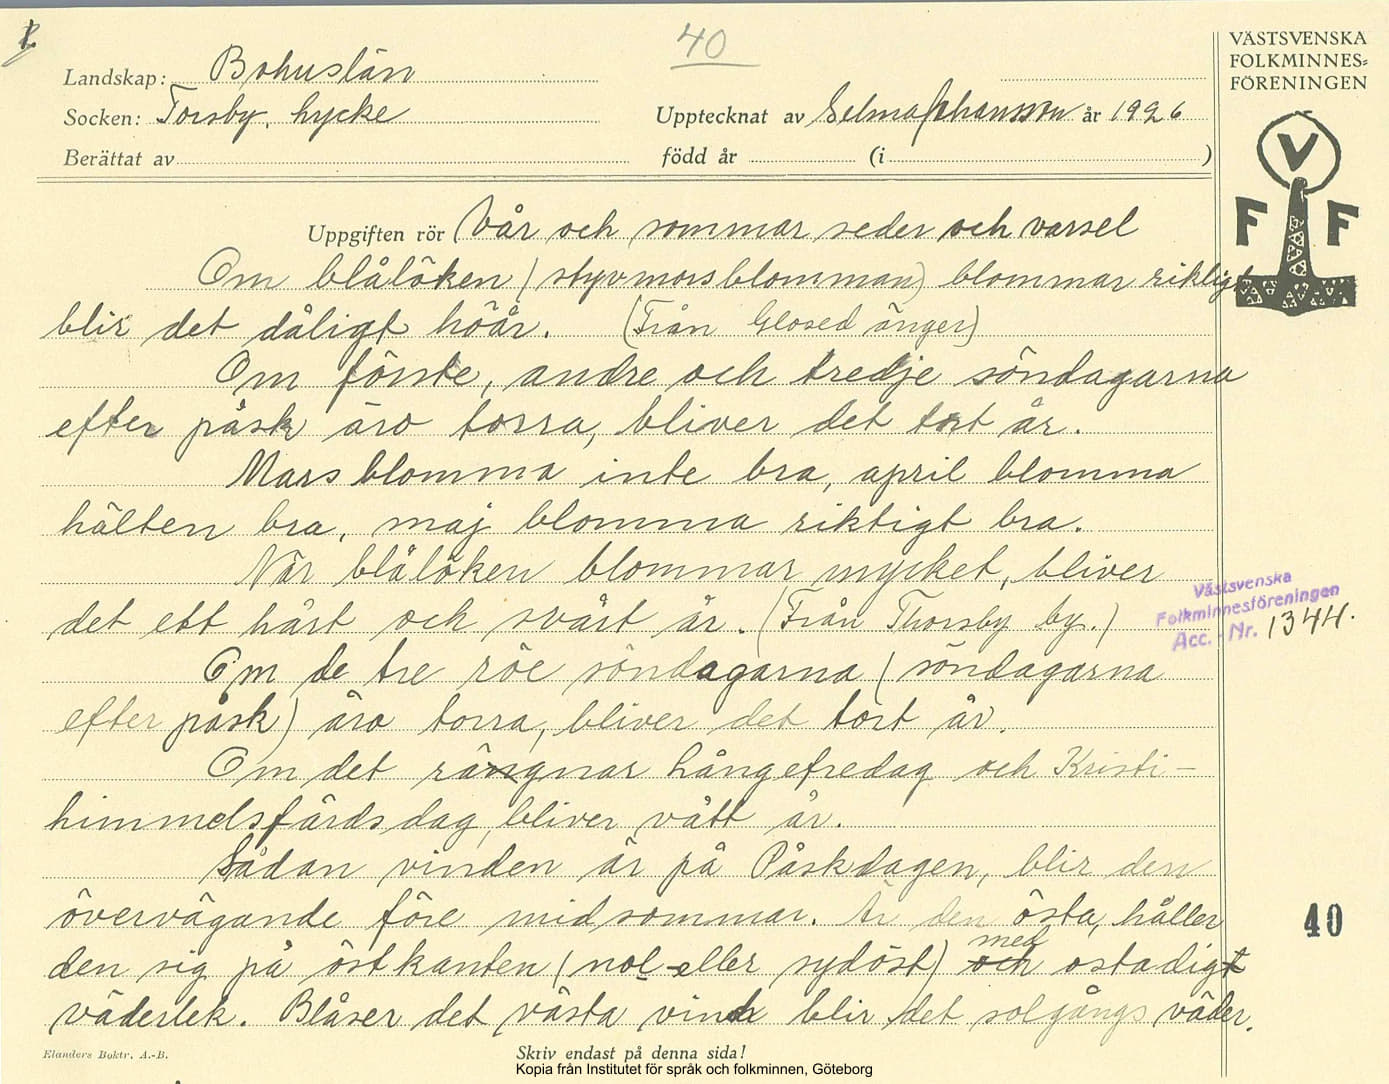 1.
40
VÄSTSVENSKA
FOLKMINNES=
FÖRENINGEN
Landskap: Bohuslän
Socken: Torsby, Lycke
Upptecknat av Selma Johansson år 1926
Berättat av
född år (i )
V
F F
Uppgiften rör Vår och sommar seder och varsel
Om blålöken (styvmorsblomman) blommar rikligt
blir det dåligt höår. (Från Glosed änger)
Om förste, andre och tredje söndagarna
efter påsk äro torra, bliver det tort år.
Marsblomma inte bra, april blomma
hälten bra, maj blomma riktigt bra.
När blålöken blommar mycket, bliver
det ett hårt och svårt år. (Från Thorsby by.)
Västsvenska
Folkminnesföreningen
Acc. - Nr. 1344.
Om de tre röe söndagarna (söndagarna
efter påsk) äro torra, bliver det tort år.
Om det rängnar Långefredag och Kristi-
himmelsfärdsdag, bliver vått år.
Sådan vinden är på Påskdagen, blir den
övervägande före midsommar. Är den östa, håller
40
den sig på östkanten (nol eller sydöst) och med ostadigt
väderlek. Blåser det västa vind blir det solgångs väder.
Elanders Boktr. A.-B.
Skriv endast på denna sida!
Kopia från Institutet för språk och folkminnen, Göteborg